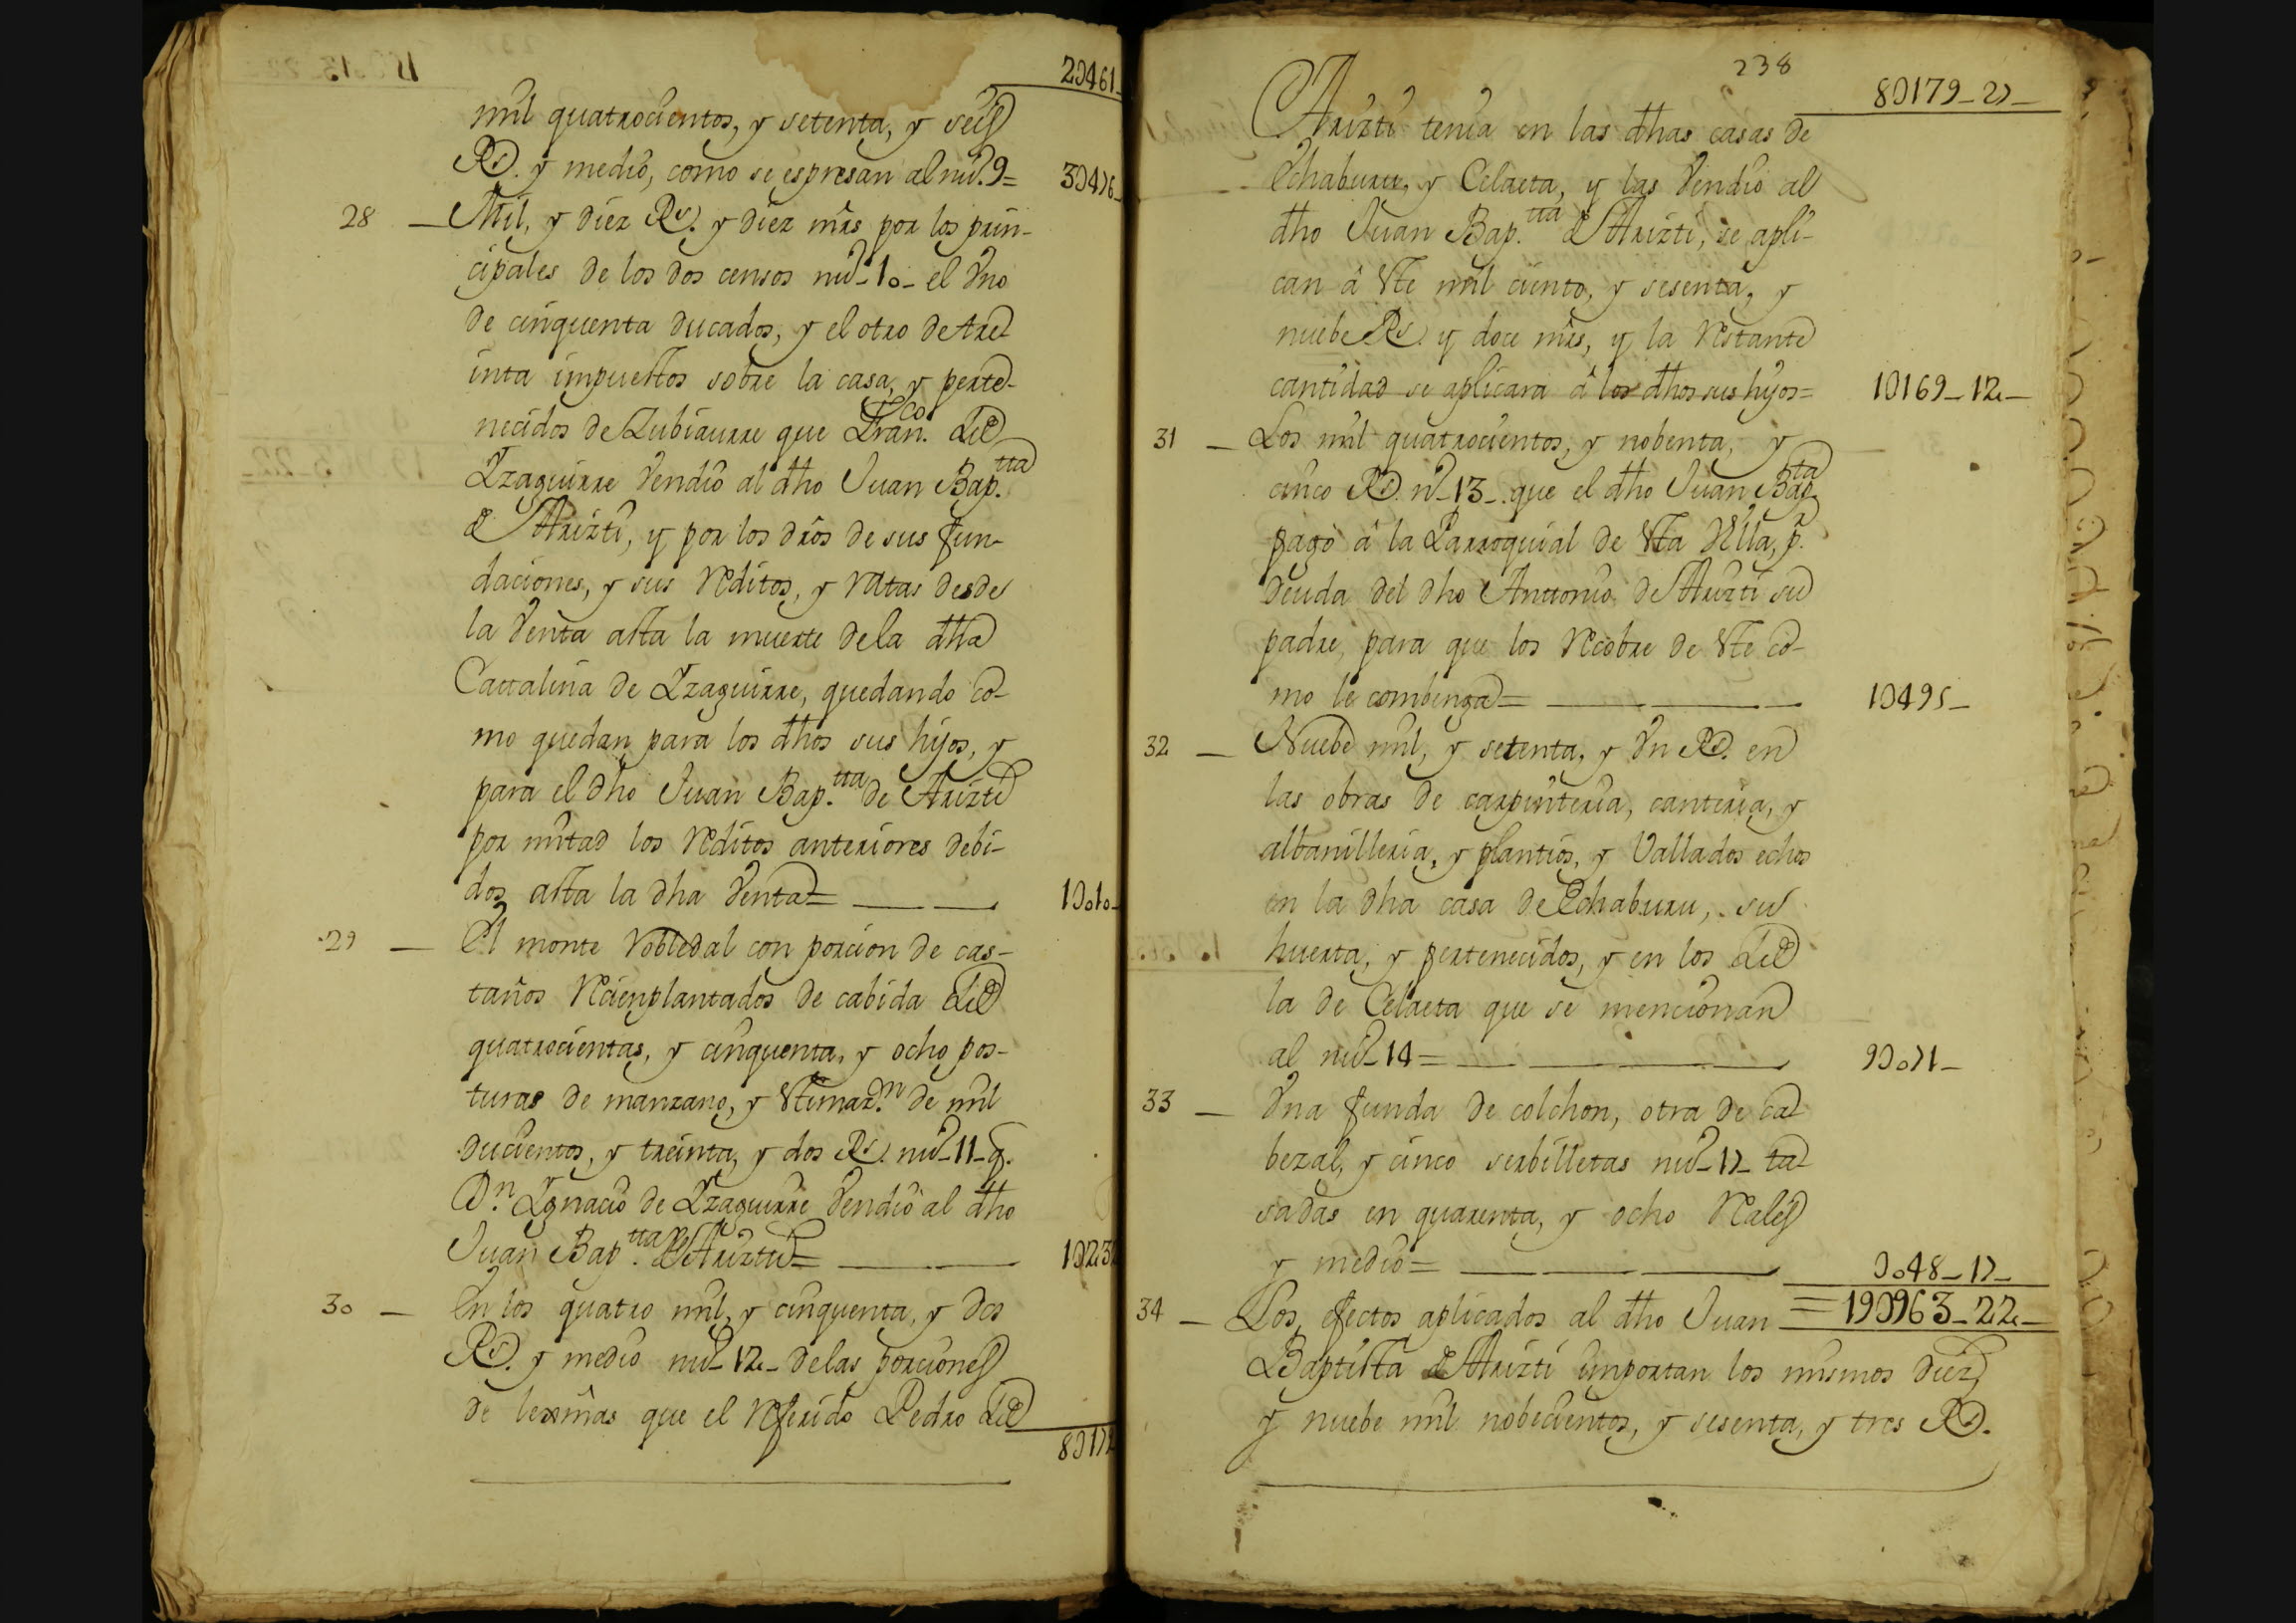 2U461_
mil quatrocientos, y setenta, y seis
Rs. y medio, como se espresan al nu. 9=  3U476_
28 _ Mil, y diez Rs. y diez mrs por los prin-
cipales de los dos censos nu_10_ el Vno
de cinquenta ducados, y el otro de tre-
inta impuestos sobre la casa, y perte-
necidos de Zubiaurre que Fran.co de
Yzaguirre Vendio al dho Juan Bap.tta
de Arizti, y por los dros de sus fun-
daciones, y sus Reditos, y ratas desde
la Venta asta la muerte dela dha
Cattalina de Yzaguirre, quedando co-
mo quedan para los dhos sus hijos, y
para el dho Juan Bap.tta de Arizti
por mitad los Reditos anteriores debi-
dos asta la dha Venta= 1U010_
29 _ El monte Robledal con porcion de cas-
taños Recienplantados de cabida de
quatrocientas, y cinquenta, y ocho pos-
turas de manzano, y estimaz.n de mil
ducientos, y treinta, y dos Rs. nu_11_q.
Dn. Ygnacio de Yzaguirre Vendio al dho
Juan Bap.tta de Arizti= 1U232
30 _ En los quatro mil, y cinquenta, y dos
Rs. y medio nu_12_ delas porciones
de lexmas que el Referido Pedro de
8U17
238
8U179_27_
Arizti tenia en las dhas casas de
Echaburu, y Celaeta, y las Vendio al
dho Juan Bap.tta de Arizti, se apli-
can â este mil ciento, y sesenta, y
nuebe Rs. y doce mrs, y la Restante
cantidad se aplicara â los dhos sus hijos= 1U169_12_
31 _ Los mil quatrocientos, y nobenta, y
cinco Rs. nu_13_ que el dho Juan Bap.ta
pagò â la Parroquial de esta Villa, p.
deuda del dho Anttonio de Arizti su
padre, para que los Recobre de este co-
mo le combenga= 1U495_
32 _ Nuebe mil, y setenta, y Vn Rs. en
las obras de carpinteria, canteria, y
albanilleria, y plantios, y Vallados echos
en la dha casa de Echaburu, su
huerta, y pertenecidos, y en los de
la de Celaeta que se mencionan
al nu_14= 9U071_
33 _ Vna funda de colchon, otra de ca-
bezal, y cinco serbilletas nu_17_ ta-
sadas en quarenta, y ocho Reales
y medio= U048_17_
=19U963_22_
34 _ Los, efectos aplicados al dho Juan
Baptista de Arizti importan los mismos diez
y nuebe mil nobecientos, y sesenta, y tres Rs.